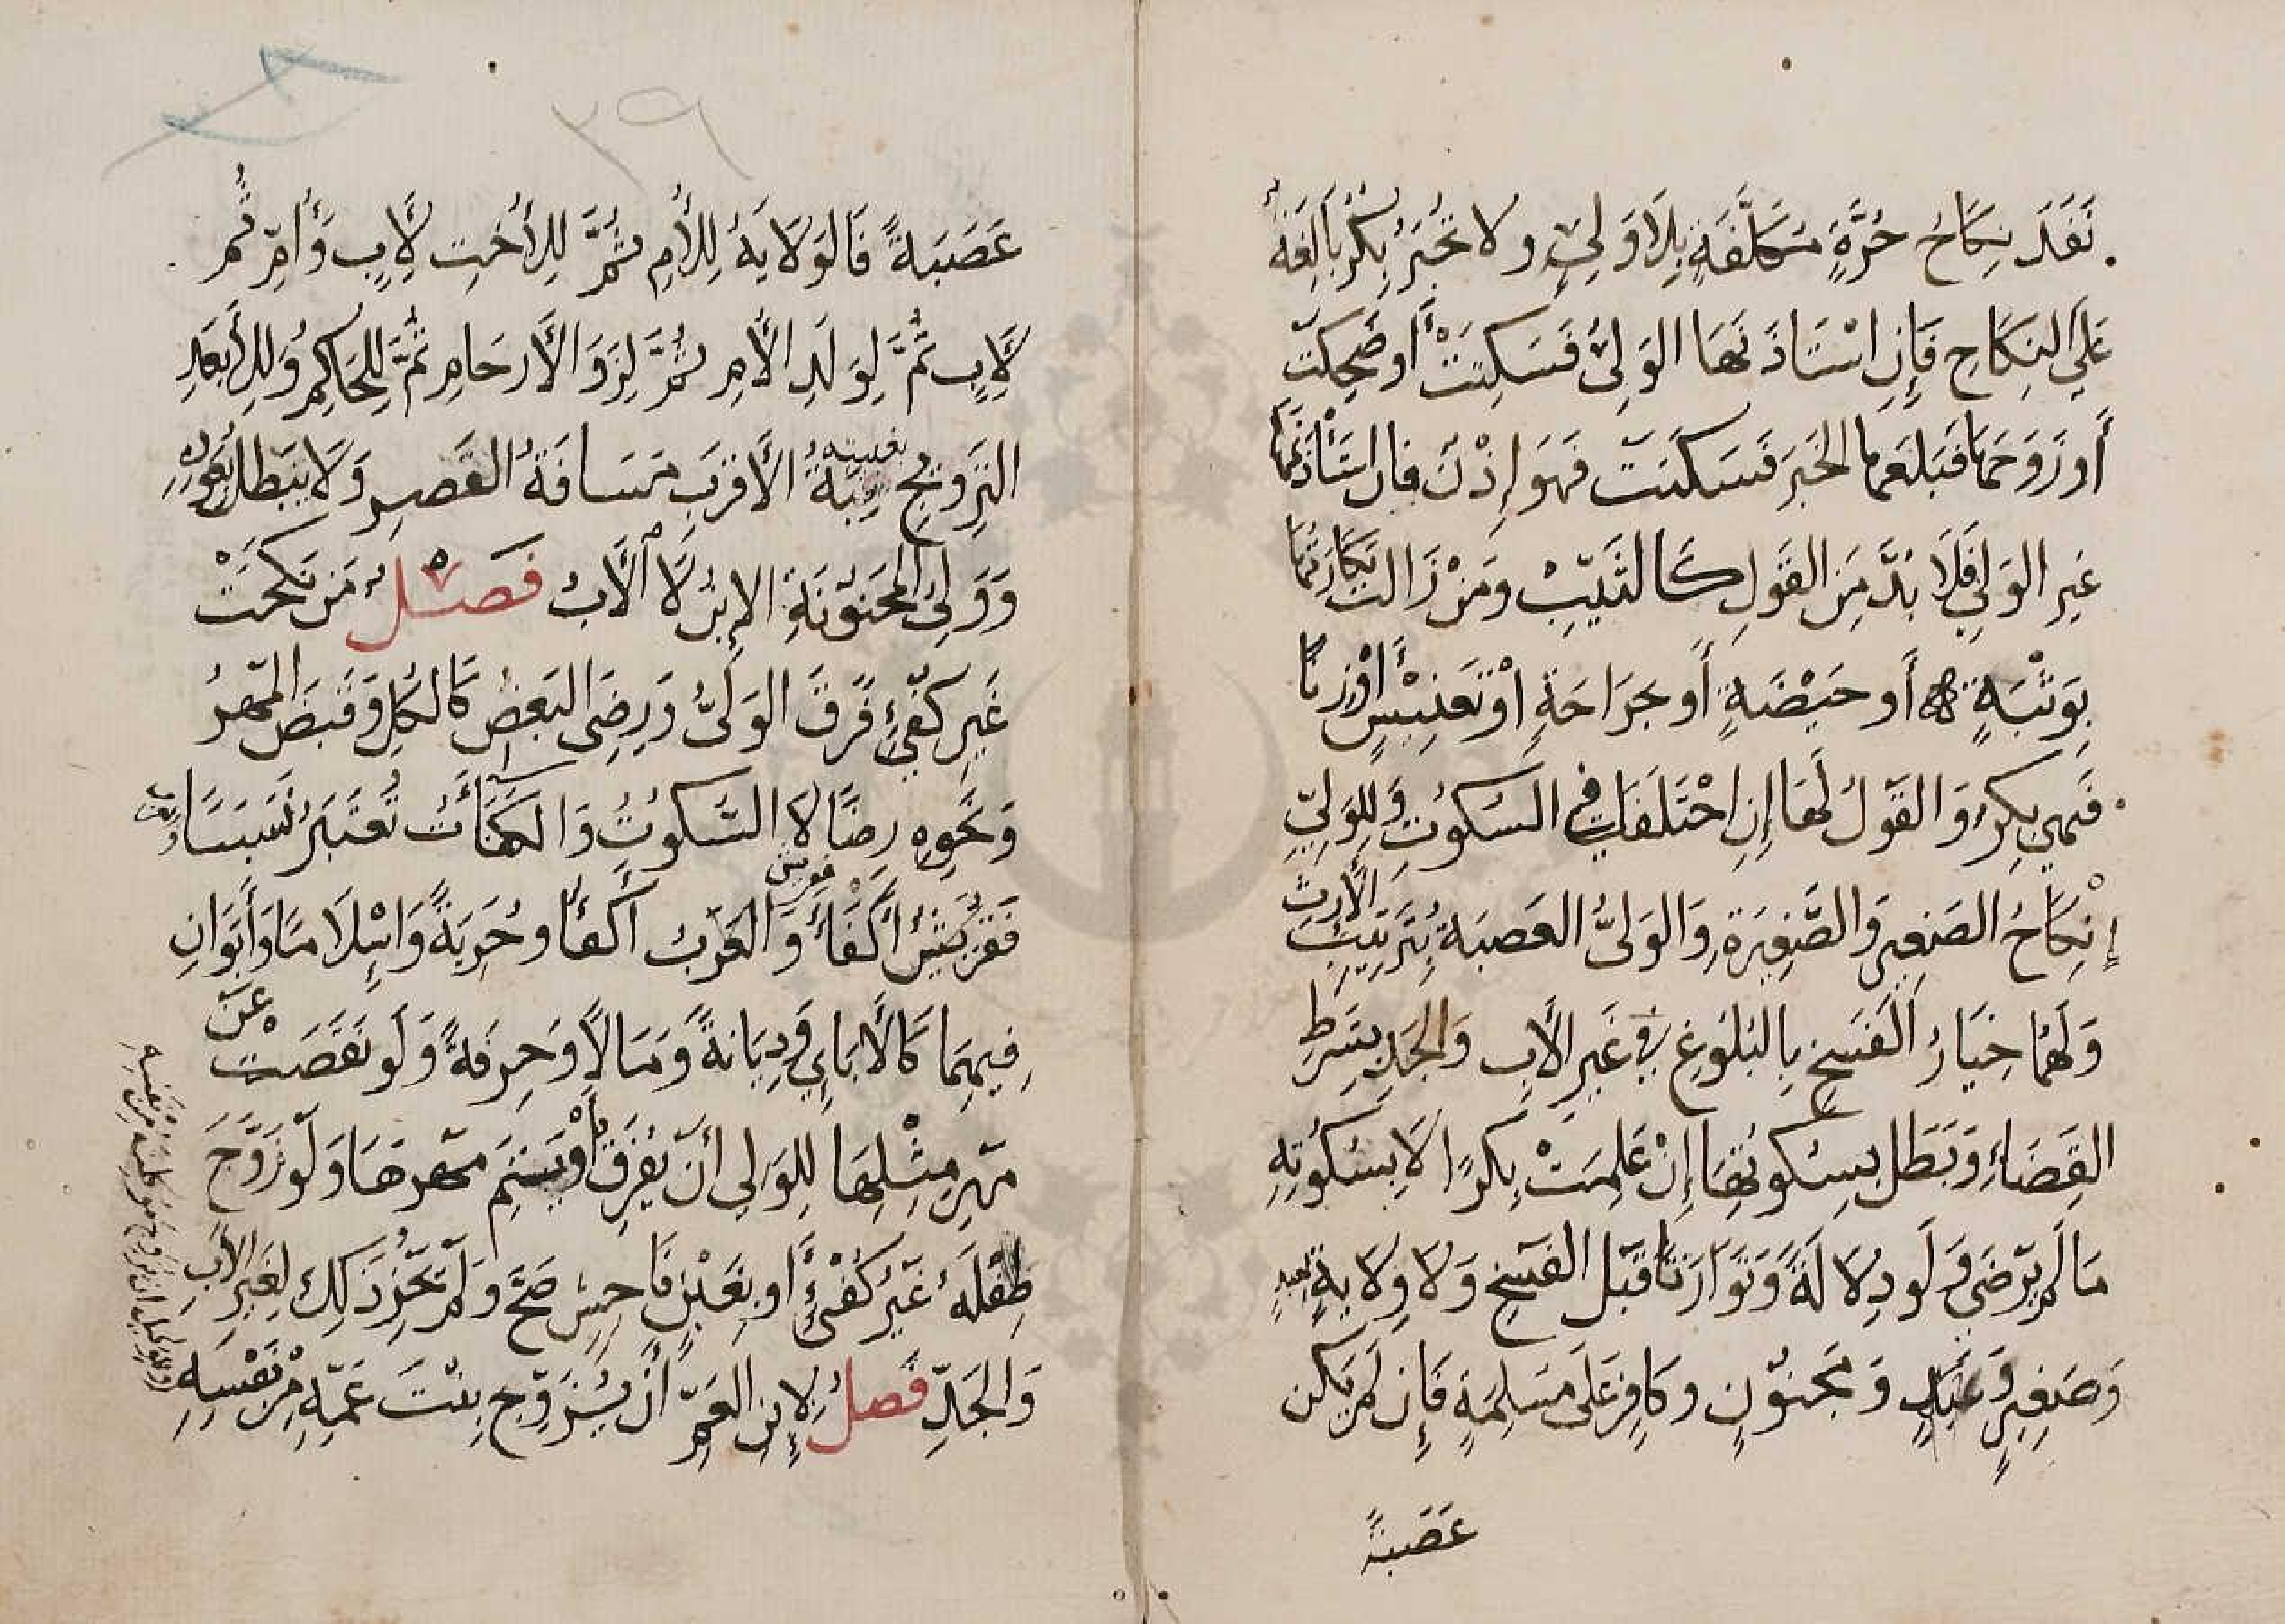 نَفَذَ نِكَاحُ حُرَّةٍ مُكَلَّفَةٍ بِلَا وَلِيٍّ ولا تُجْبَرُ بِكْرٌ بَالِغَةٌ
عَلَى النِكَاحِ فَإِنِ اسْتَاذَنَهَا الوَلِيُّ فَسَكَتَتْ أَو ضَحِكَتْ
أَو زَوَّجَهَا فَبَلَغَهَا الخَبَرُ فَسَكَتَت فَهَوَ إِذْنٌ فإن اسْتَأذَنَهَا
غَيرُ الوَلِيِّ فَلَا بُدَّ مِنَ القَولِ كَالثَيِّبِ وَمَنْ زَالَت بَكَارَتُهَا
بِوَثْبَةٍ أَو حَيْضَةٍ أَو جَرَاحَةٍ أَوْ تَعْنِيْسٍ أَوْ زِنًا
فَهِيَ بِكرٌ وَالقَولُ لَهَا إِنِ اخْتَلَفَا فِي السُكُوتِ وَلِلوَلِيِّ
إِنْكَاحُ الصَغِيرِ وَالصَّغِيرَةِ وَالوَلِيُّ العَصَبَةُ بِتَرتِيبِ الأَرِثِ
وَلَهُمَا خِيَارُ الفَسخِ بِالبُلُوغِ فِي غَيرِ الأَبِ وَالجَدِّ بِشَرطِ
القَضَاءِ وَبَطَل بِسُكوتِهَا إِنْ عَلِمَتْ بِكرًا لَا بِسُكُوتِهِ
مَا لَم يَرضَى وَلَو دِلَالَةً وَتَوَارَثَا قَبْلَ الفَسخِ وَلا وِلايةَ لعبدٍ
وَصَغِيرٍ وَ وَمَجنُونٍ وكَافِرٍ عَلَى مُسلِمَةٍ فَإِن لَم يَكن
عَصَبَةً
٣٩
عَصَبَةً فَالوَلَايَةُ لِلأُمِ ثُمَّ لِلأُخْتِ لِأَبٍ وَأُمٍّ ثُمَّ
لِأَبٍ ثُمَّ لِوَلَدِ الأُمِ ثُمَّ لِذَوِ الأَرحَامِ ثُمَّ لِلحَاكِمِ وَلِلأَبعَدِ
التَزوِيجُ بغيبة غيبةُ الأَقرَبِ مَسَافَةَ القَصرِ وَلَا يَبطَلُ بِعَودِهِ
وَوَلِيُّ المَجنُونَةِ الإِبنُ لَا الأَبُ فَصْلٌ مَن نَكَحَتْ
غَيرَ كُفْئٍ فَرَّقَ الوَلِيُّ وَرِضَى البَعضِ كَالكُلِّ وَقَبضُ المَهرِ
وَنَحوِهِ رِضًا لا السُّكوتُ وَالكَفَأَتُ تُعتَبَرُ نَسَبًا
فَقُرَيشٌ أَكفَأٌ وَالعَرَبُ أَكفَأٌ وحُرِيَةً وَإِسْلَامًا وَأَبَوَانِ
فِيهِمَا كَالأَبَاءِ وَدِيَانَةً وَمَالًا وَحِرفَةً وَلَو نَقَصَتْ عَن
مَهرِ مِثْلِهَا لِلوَلِي أَن يُفَرِقَ أَوْ يتم مَهرَهَا وَلَو زَوَّجَ
طِفلَهُ غَيرَ كُفْئٍ أَو بِغَبْنٍ فَاحِشٍ صَحَّ وَلَم يَجُزْ ذَلِكَ لِغَيرِ الأَبِ
وَالجَدِّ فَصلٌ لِإِبنِ العَمِّ أَنْ يُزَوِّجَ بِنْتَ عَمِّهِ مِنْ نَفْسِهِ